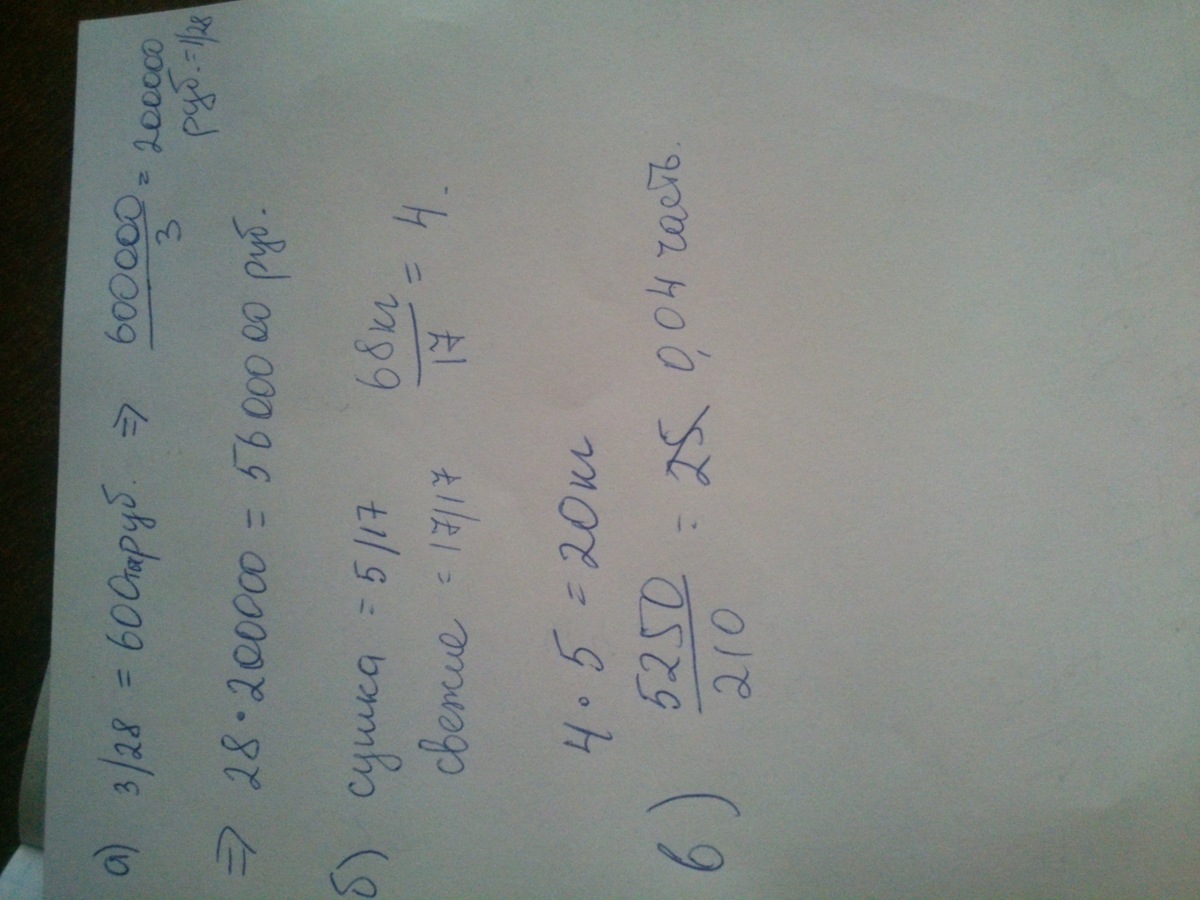 а) 3/28 = 600та руб. ⇒ 600000/3 = 200000 руб. = 1/28
⇒ 28 · 200000 = 5600000 руб.
б) сушка = 5/17 68кг/17 = 4.
свежие = 17/17
4 · 5 = 20кг
в) 5250/210 = 25 0,04 часть.